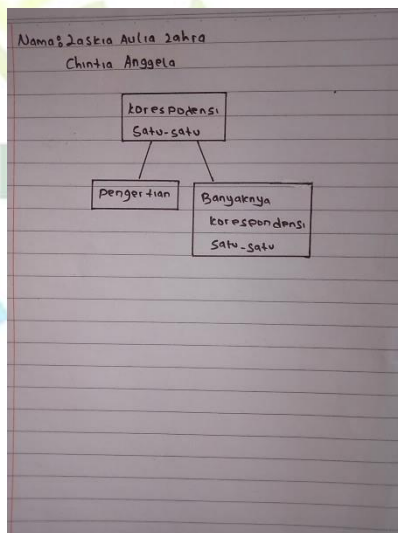 Nama: Zaskia Aulia Zahra
Chintia Anggela
Korespodensi
Satu-satu
Pengertian
Banyaknya
korespondensi
satu-satu